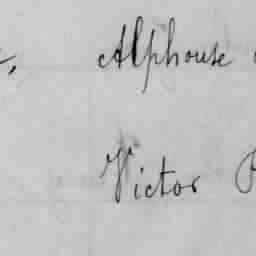 Alphouse
Victor